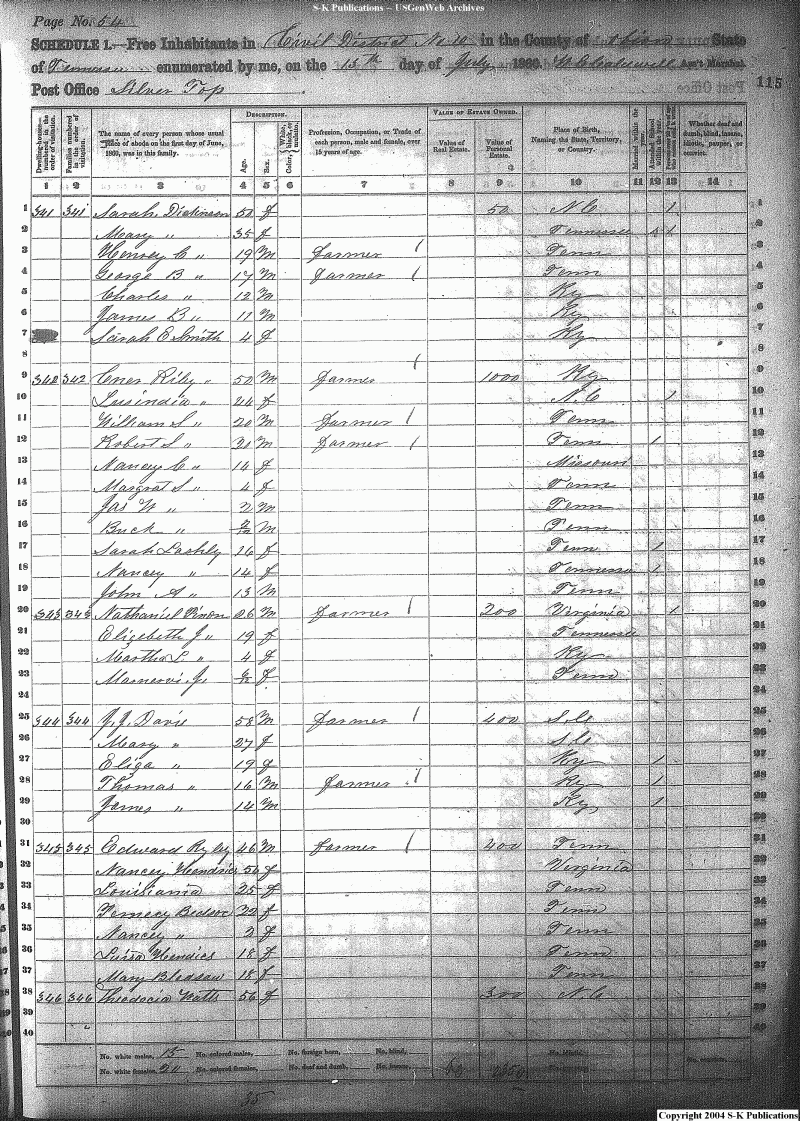 S-K Publications – USGenWeb Archives
Page No. 54
SCHEDULE 1.—Free Inhabitants in Civil District No 10 in the County of Obion State
of Tennessee enumerated by me, on the 13th day of July 1860. Ass't Marshal.
Post Office Silver Top 115
Dwelling-houses—numbered in the order of visitation.
Families numbered in the order of visitation.
The name of every person whose usual place of abode on the first day of June, 1860, was in this family.
DESCRIPTION.
Age.
Sex.
Color, White, black, or mulatto.
Profession, Occupation, or Trade of each person, male and female, over 15 years of age.
VALUE OF ESTATE OWNED.
Value of Real Estate.
Value of Personal Estate.
Place of Birth, Naming the State, Territory, or Country.
Married within the year.
Attended School within the year.
Whether deaf and dumb, blind, insane, idiotic, pauper, or convict.
1 2 3 4 5 6 7 8 9 10 11 12 13 14
1 341 341 Sarah Dickinson 50 f 50 N.C 1 1
2 Mary " 35 f Tennessee 1 1 2
3 Henrey C " 19 M farmer 1 Tenn 3
4 George B " 17 M farmer 1 Tenn 4
5 Charles " 12 M Ky 5
6 James B " 11 M Ky 6
7 Sarah E Smith 4 f Ky 7
8 8
9 342 342 Riley " 50 M farmer 1 1000 Ky 9
10 Lusindia " f N.C 1 10
11 William S " 20 M farmer 1 Tenn 11
12 Robert S " M farmer 1 Tenn 1 12
13 Nancey C " 14 f Missouri 13
14 Margrat S " 4 f Tenn 14
15 Jas W " 2 M Tenn 15
16 Buck " M Tenn 16
17 Sarah Lashly 16 f Tenn 1 17
18 Nancey " 14 f Tennessee 1 18
19 John A " 13 M Tenn 19
20 343 343 Nathaniel 26 M farmer 1 200 Virginia 1 20
21 Elizebeth J " 19 f Tennessee 21
22 Martha L " 4 f Ky 22
23 f Tenn 23
24 24
25 344 344 J. J. Davis 58 M farmer 1 400 S.C 25
26 Mary " 27 f S.C 26
27 Eliza " 19 f Ky 1 27
28 Thomas " 16 M farmer 1 Ky 1 28
29 James " 14 M Ky 1 29
30 30
31 345 345 Edward Ryley 46 M farmer 1 400 Tenn 31
32 Nancey Hendrics 50 f Virginia 32
33 Louisiania 25 f Tenn 33
34 22 f Tenn 34
35 Nancey " 3 f Tenn 35
36 Hendics 18 f Tenn 36
37 Mary Bledsaw 18 f Tenn 37
38 346 346 Theodocia Watts 56 f 300 N.C 38
39 39
40 40
No. white males, 15 No. colored males, No. foreign born, No. blind,
No. white females, 20 No. colored females, No. deaf and dumb, No. insane, 2350
35
Copyright 2004 S-K Publications